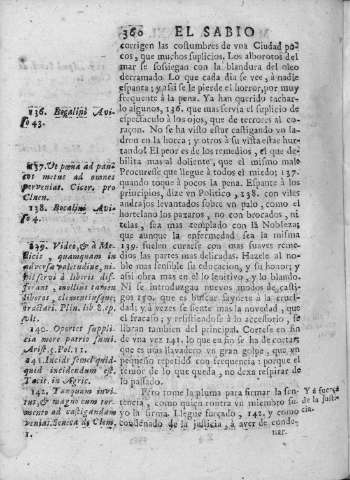 360 EL SABIO
corrigen las costumbres de vna Ciudad po-
cos, que muchos suplicios. Los alborotos del
mar se sosiegan con la blandura del oleo
derramado. Lo que cada dia se vee, à nadie
espanta; y assi se le pierde el horror, por muy
frequente à la pena. Ya han querido tachar-
lo algunos, 136. que mas servia el suplicio de
espectaculo à los ojos, que de terrores al co-
raçon. No se ha visto estar castigando vn la-
dron en la horca; y otros à su vista estar hur-
tando? El peor es de los remedios, el que de-
bilita mas al doliente, que el mismo male
Procurese que llegue à todos el miedo; 137.
quando toque à pocos la pena. Espante à los
principios, dize vn Politico, 138. con viles
andrajos levantados sobre vn palo, como el
hortelano los paxaros, no con brocados, ni
telas, sea mas templado con la Nobleza;
que aunque la enfermedad sea la misma
139. suelen curarse con mas suaves reme-
dios las partes mas delicadas. Hazele al no-
ble mas sensible su educacion, y su honor; y
assi obra mas en èl lo lenitivo, y lo blando.
Ni se introduzgan nuevos modos de cas-
tigos 140. que es buscar saynete à la cruel-
dad; y à vezes se siente mas la novedad, que
el fracaso; y resistiendose à lo accessorio, se
libran tambien del principal. Cortese en fin
de vna vez 141. lo que en fin se ha de cortar:
que es mas llavadero vn gran golpe, que vn
pequeño repetido con frequencia: porque el
temor de lo que queda, no dexa respirar de
lo passado.
Pero tome la pluma para firmar la sen-
tencia, como quien contra vn miembro su-
yo la firma. Llegue forçado, 142. y como
condenado de la justicia, à aver de conde-
nar.
136. Bocalino Avi-
so 43.
137. Ut pœna ad pau-
cos metus ad omnes
perveniat. Cicer. pro
Cluen.
138. Bocalino Avi-
so 4.
139. Video, & à Me-
dicis, quamquam in
adversa valetudine, ni-
hil servi à liberis dif-
ferant, mollius tamen
liberos, clementiusque;
tractari. Plin. lib. 8. ep.
ult.
140. Oportet suppli-
cia more patrio sumi.
Arist. 5. Pol. 11.
141. Incidi semel quid-
quid incidendum est.
Tacit. in Agric.
142. Tanquam invi-
tus, & magno cum tor-
mento ad castigandum
veniat. Seneca de Clem.
1.
Y à fuerça
de la justi-
cia.